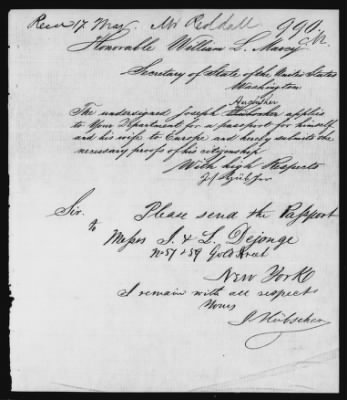 Recd 17 May. Mr Reddall 990
Honorable William L. Marcy
Secretary of State of the United States
Washington
The undersigned Joseph applies
to Your Department for a passport for himself
and his wife to Europe and hereby submits the
necessary proof of his citizenship
With high Respects
Sir. Please send the Passport
to
Messrs J. & L. Dejonge
No 57 & 59 Gold Street
New York
I remain with all respect
Yours
J. Hübscher